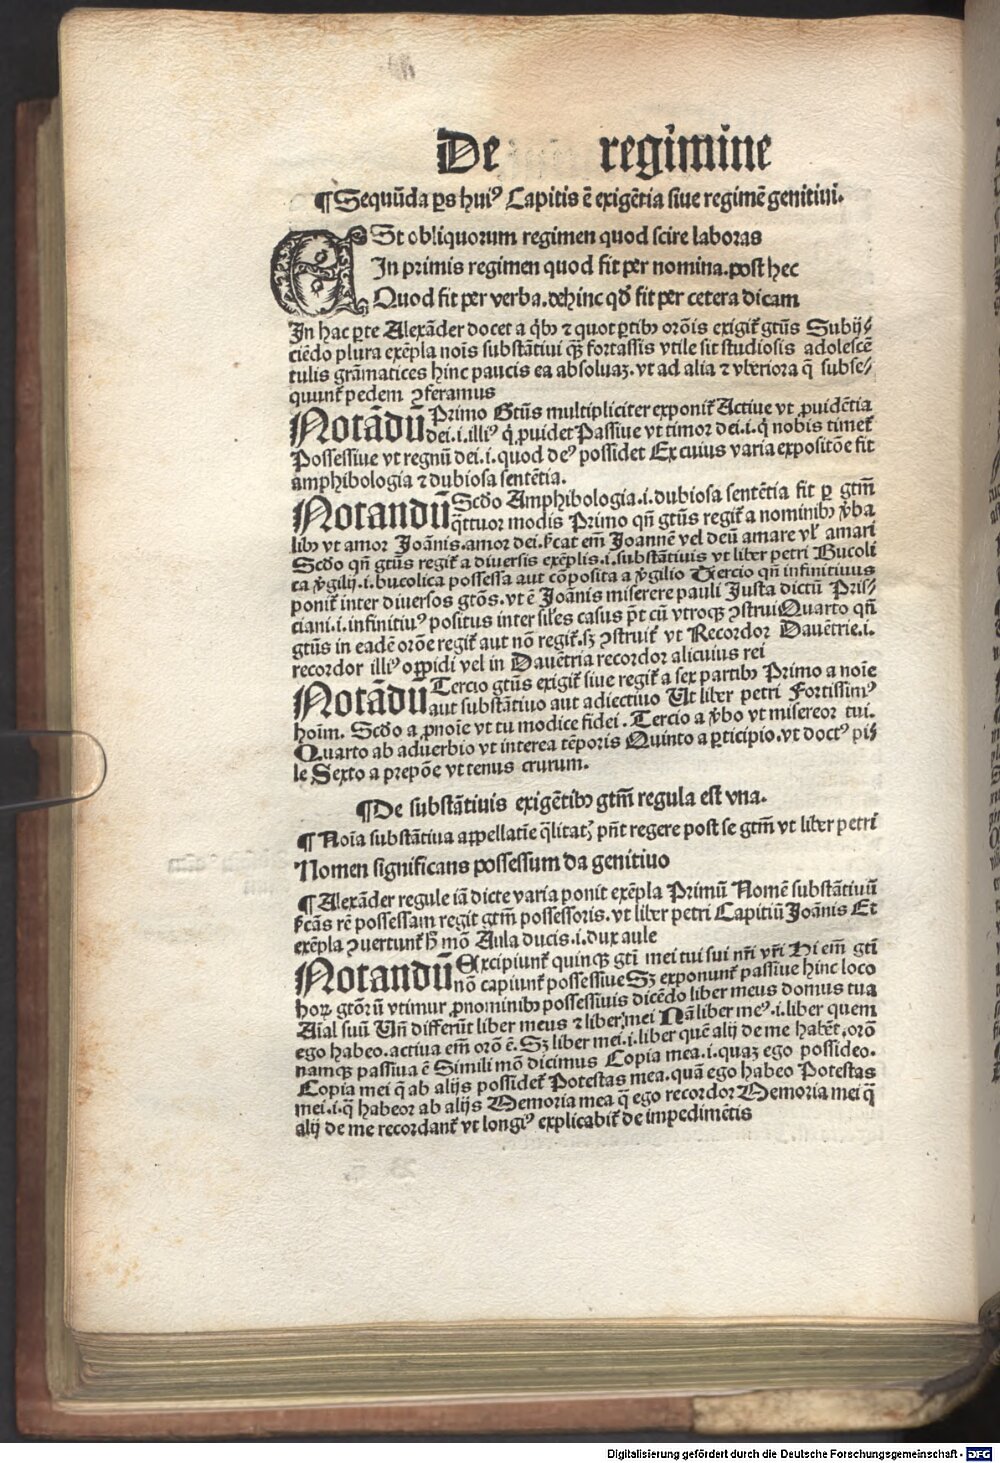 De regimine
¶Sequũda ps huiꝰ Capitis ẽ exigẽtia siue regimẽ genitiui.
ESt obliquorum regimen quod scire laboras
In primis regimen quod fit per nomina.post hec
Quod fit per verba.dehinc qđ fit per cetera dicam
In hac pte Alexãder docet a qͥbꝫ ⁊ quot ptibꝫ orõis exigit᷑ gtũs Subij⸗
ciẽdo plura exẽpla nois substãtiui qꝫ fortassis vtile sit studiosis adolescẽ
tulis grãmatices hinc paucis ea absoluaꝫ.vt ad alia ⁊ vberiora q̃ subse⸗
quunt᷑ pedem ꝯferamus
Notãdũ Primo Gtũs multipliciter exponit᷑ Actiue vt ꝓuidẽtia
dei.i.illiꝰ q̇ ꝓuidet Passiue vt timor dei.i.q̇ nobis timet᷑
Possessiue vt regnũ dei.i.quod deꝰ possidet Ex cuius varia expositõe fit
amphibologia ⁊ dubiosa sentẽtia.
Notandũ Scđo Amphibologia.i.dubiosa sentẽtia fit ꝑ gtm̃
q̃ttuor modis Primo qñ gtũs regit᷑ a nominibꝫ v̾ba
libꝫ vt amor Joãnis.amor dei.ſ᷑cat em̃ Joannẽ vel deũ amare vł amari
Scđo qñ gtũs regit᷑ a diuersis exẽplis.i.substãtiuis vt liber petri Bucoli
ca v̾gilij.i.bucolica possessa aut cõposita a v̾gilio Tercio qñ infinitiuus
ponit᷑ inter diuersos gtõs.vt ẽ Joãnis miserere pauli Justa dictũ Pris⸗
ciani.i.infinitiuꝰ positus inter siłes casus pt̃ cũ vtroqꝫ ꝯstrui Quarto qñ
gtũs in eadẽ orõe regit᷑ aut nõ regit᷑.sꝫ ꝯstruit᷑ vt Recordor Dauẽtrie.i.
recordor illiꝰ oppidi vel in Dauẽtria recordor alicuius rei
Notãdũ Tercio gtũs exigit᷑ siue regit᷑ a sex partibꝫ Primo a noĩe
aut substãtiuo aut adiectiuo Ut liber petri Fortissimꝰ
hoĩm. Scđo a ꝓnoĩe vt tu modice fidei. Tercio a v̾bo vt misereor tui.
Quarto ab aduerbio vt interea tẽporis Quinto a pticipio.vt doctꝰ pi⸗
le Sexto a prepõe vt tenus crurum.
¶De substãtiuis exigẽtibꝫ gtm̃ regula est vna.
¶Noĩa substãtiua appellatiẽ q̃litatꝭ pñt regere post se gtm̃ vt liber petri
Nomen significans possessum da genitiuo
¶Alexãder regule iã dicte varia ponit exẽpla Primũ Nomẽ substãtiuũ
ſ᷑cãs rẽ possessam regit gtm̃ possessoris.vt liber petri Capitiũ Joãnis Et
exẽpla ꝯuertunt᷑ h̾ mõ Aula ducis.i.dux aule
Notandũ Excipiunt᷑ quinqꝫ gti mei tui sui nr̃i vr̃i Hi em̃ gti
nõ capiunt᷑ possessiue Sꝫ exponunt᷑ passiue hinc loco
hoꝝ gtõrũ vtimur ꝓnominibꝫ possessiuis dicẽdo liber meus domus tua
Aĩal suũ Uñ differũt liber meus ⁊ liber mei Nã liber meꝰ.i.liber quem
ego habeo.actiua em̃ orõ ẽ. Sꝫ liber mei.i.liber quẽ alij de me habẽt.orõ
namqꝫ passiua ẽ Simili mõ dicimus Copia mea.i.quaꝫ ego possideo.
Copia mei q̃ ab alijs possidet᷑ Potestas mea.quã ego habeo Potestas
mei.i.q̃ habeor ab alijs Memoria mea q̃ ego recordor Memoria mei q̃
alij de me recordant᷑ vt longiꝰ explicabit᷑ de impedimẽtis
Digitalisierung gefördert durch die Deutsche Forschungsgemeinschaft - DFG